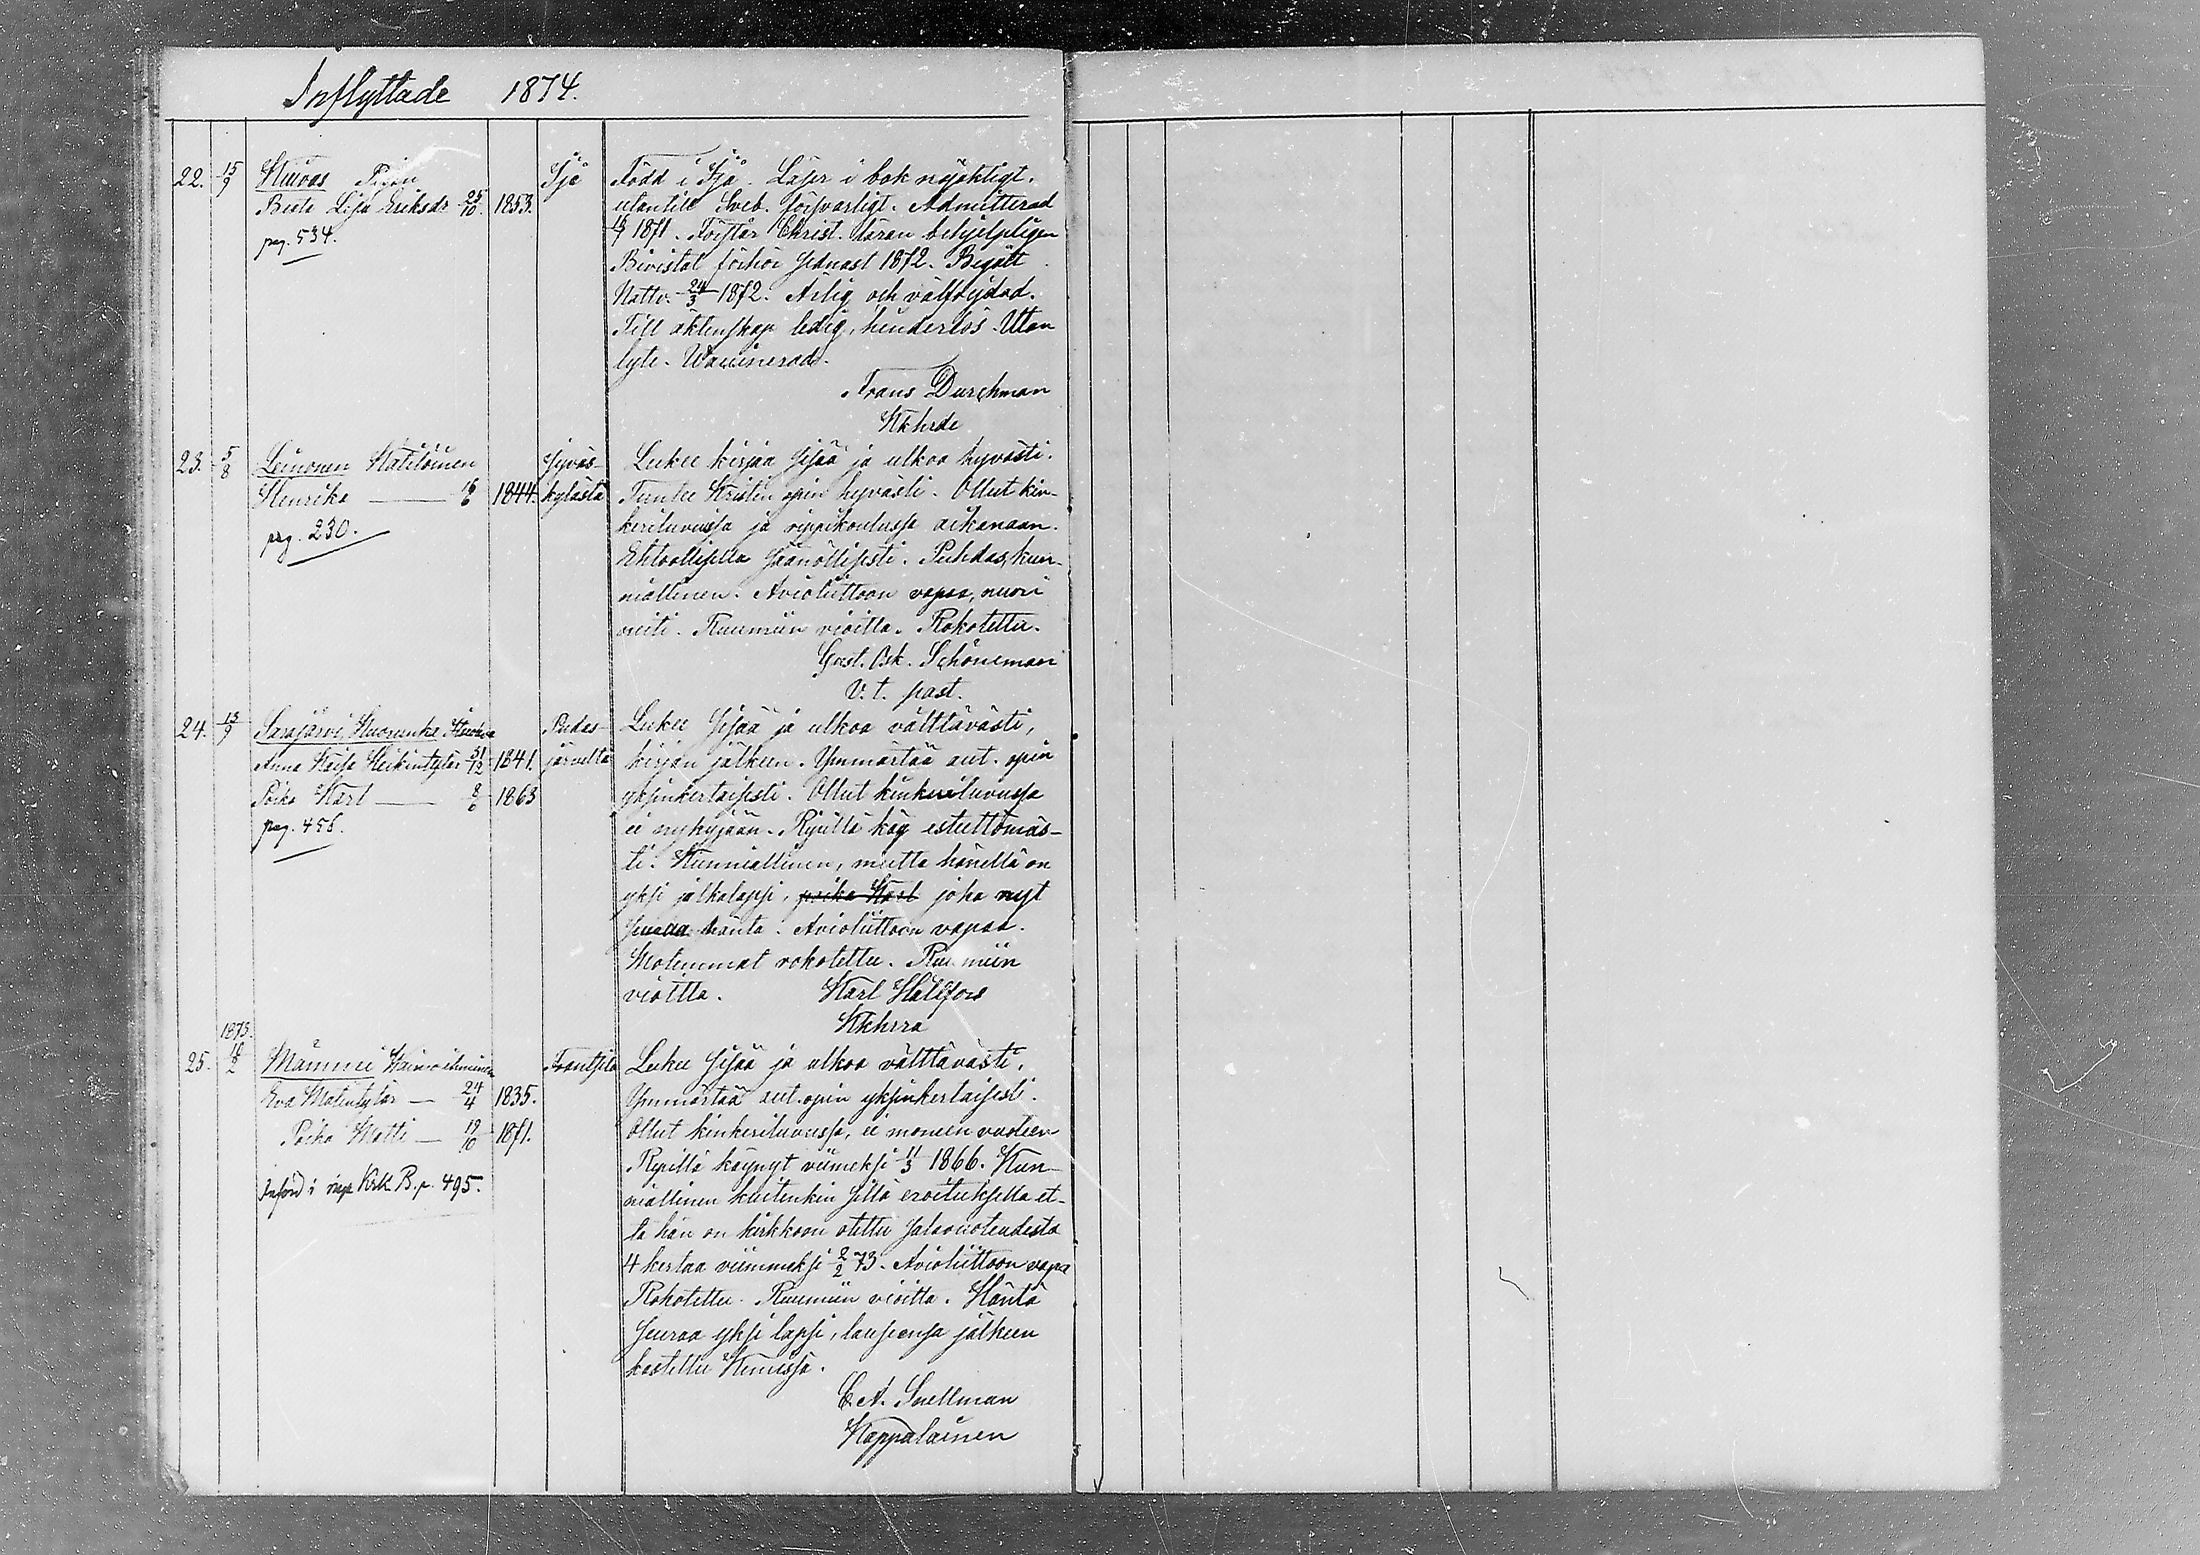 Inflyttade 1874.
22. 15/9 Huvas Pigan
Beata Lisa Eriksdr 25/10 1853. Ijo
pag. 534.
Född i Ijo. Läser i bok nöjaktigt,
utantill Sveb. försvarligt. Admitterad
1871. Förstår Christ. läran behjelpligen
Bivistat förhör senast 1872. Begått
Nattv. 24/3 1872. Ärlig och välfrejdad.
Till äktenskap ledig, hinderlös. Utan
lyte. Vaccinerad.
Frans Durchman
Kkhrde
23. 5/8 Leinonen Itsellinen
Henrika 1844. Jyväs-
kylästä
pag. 230.
Lukee kirjaa sisää ja ulkoa hyvästi.
Tuntee Kristin opin hyvästi. Ollut kin-
keriluvuissa ja rippikoulussa aikanaan.
Ehtoollisella säänöllisesti. Puhdas, kun-
niallinen. Avioliittoon vapaa, nuori
neiti. Ruumiin vioitta. Rokotettu.
Gust. Osk. Schöneman
V. t. past.
24. 15/9 Sarajärvi
Anna Kaisa Heikintytär 31/12 1841. Pudas-
järveltä
Poika Karl 1863
pag. 458.
Lukee sisää ja ulkoa välttävästi,
kirjan jälkeen. Ymmärtää aut. opin
yksinkertaisesti. Ollut kinkeriluvussa
ei nykyjään. Ripillä käy esteettömäs-
ti. Kunniallinen, mutta hänellä on
yksi jalkalapsi, poika Karl joka nyt
seuraa häntä. Avioliittoon vapaa.
Molemmat rokotettu. Ruumiin
vioitta. Karl Hällfors
Kkhrra
1873.
25. Mämmi
Eva Matintytär 24/4 1835. Frantsila
Poika Matti 19/10 1871.
Införd i nya Krk B. p. 495.
Lukee sisää ja ulkoa välttävästi.
Ymmärtää aut. opin yksinkertaisesti.
Ollut kinkeriluvussa, ei moneen vuoteen
Ripillä käynyt viimeksi 11/3 1866. Kun-
niallinen kuitenkin sillä eroituksella et-
tä hän on kirkkoon otettu salavuoteudesta
4 kertaa viimmeksi 2/2 73. Avioliittoon vapa
Rokotettu. Ruumiin vioitta. Häntä
seuraa yksi lapsi, lausensa jälkeen
kastettu Kemissä.
C. A. Snellman
Kappalainen